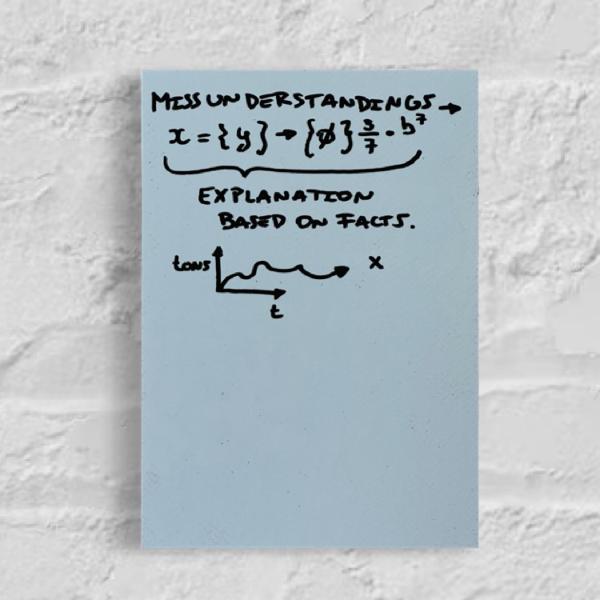 MISSUNDERSTANDINGS →
x = {y} → {ø} 3/7 · b⁷
EXPLANATION
BASED ON FACTS.
tons
x
t